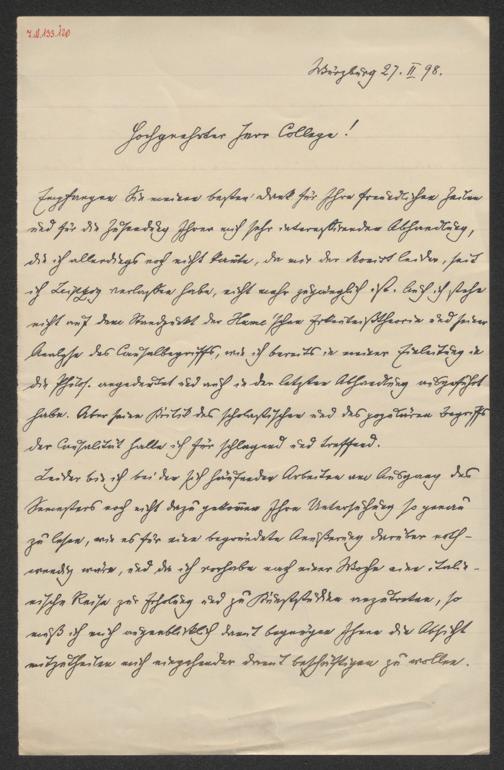 Würzburg 27. II 98.
Hochgeehrter Herr College!
Empfangen Sie meinen besten Dank für Ihre freundlichen Zeilen
und für die Zusendung Ihrer mich sehr interessirenden Abhandlung,
die ich allerdings noch nicht kannte, da mir der leider, seit
ich Leipzig verlassen habe, nicht mehr zugänglich ist. Auch ich stehe
nicht auf dem Standpunkt der Hume'schen Erkenntnißtheorie und seiner
Analyse des Causalbegriffs, wie ich bereits in meiner Einleitung in
die Philos. angedeutet und auch in der letzten Abhandlung ausgeführt
habe. Aber seine Kritik des scholastischen und des populären Begriffs
der Causalität halte ich für schlagend und treffend.
Leider bin ich bei den sich häufenden Arbeiten am Ausgang des
Semesters noch nicht dazu gekommen Ihre Untersuchung so genau
zu lesen, wie es für eine begründete Aeußerung darüber noth-
wendig wäre, und da ich vorhabe nach einer Woche eine italie-
nische Reise zur Erholung und zu Kunststudien anzutreten, so
muß ich mich augenblicklich damit begnügen Ihnen die Absicht
mitzutheilen mich eingehender damit beschäftigen zu wollen.